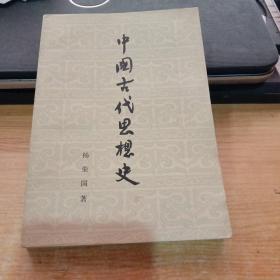 中国古代思想史
杨荣国著